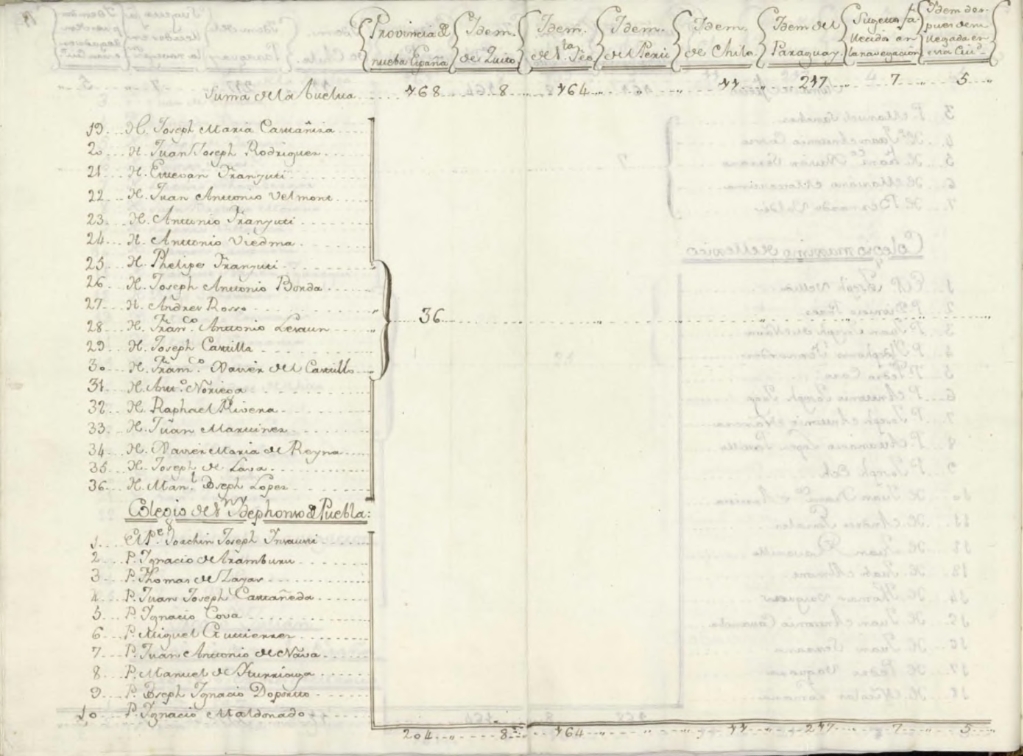 Provincia de nueba España Idem. de Quito Idem. de Sta. Fèe Idem. del Perù Idem. de Chile Idem del Paraguay Sugetos fallecidos en la navegacion Idem despues de su llegada en
Suma de la buelta..... 168..... 8..... 164..... 11..... 217..... 7..... 5
19... H. Joseph Maria Castañiza
20... H. Juan Joseph Rodriguez
21... H. Estevan Franyuti
22... H. Juan Antonio Velmont
23... H. Antonio Franyuti
24... H. Antonio Viedma
25... H. Phelipe Franyuti
26... H. Joseph Antonio Borda
27... H. Andres Rosso
28... H. Franco. Antonio 36
29... H. Joseph Castilla
30... H. Franco. Xavier del Castillo
31... H. Anto. Noriega
32... H. Raphael Rivera
33... H. Juan Martinez
34... H. Xavier Maria de Reyna
35... H. Joseph de Lava
36... H. Manl. Joseph Lopez
Colegio de Sn. Ildephonso de Puebla:
1... El Pe. Joachin Joseph Insausti
2... P. Ignacio de Aramburu
3... P. Thomas de Zayas
4... P. Juan Joseph Castañeda
5... P. Ignacio Cova
6... P. Miguel Gutierrez
7... P. Juan Antonio de Nava
8... P. Manuel de Iturriaga
9... P. Joseph Ignacio Doporto
10... P. Ignacio Maldonado
204..... 8..... 164..... 11..... 217..... 7..... 5